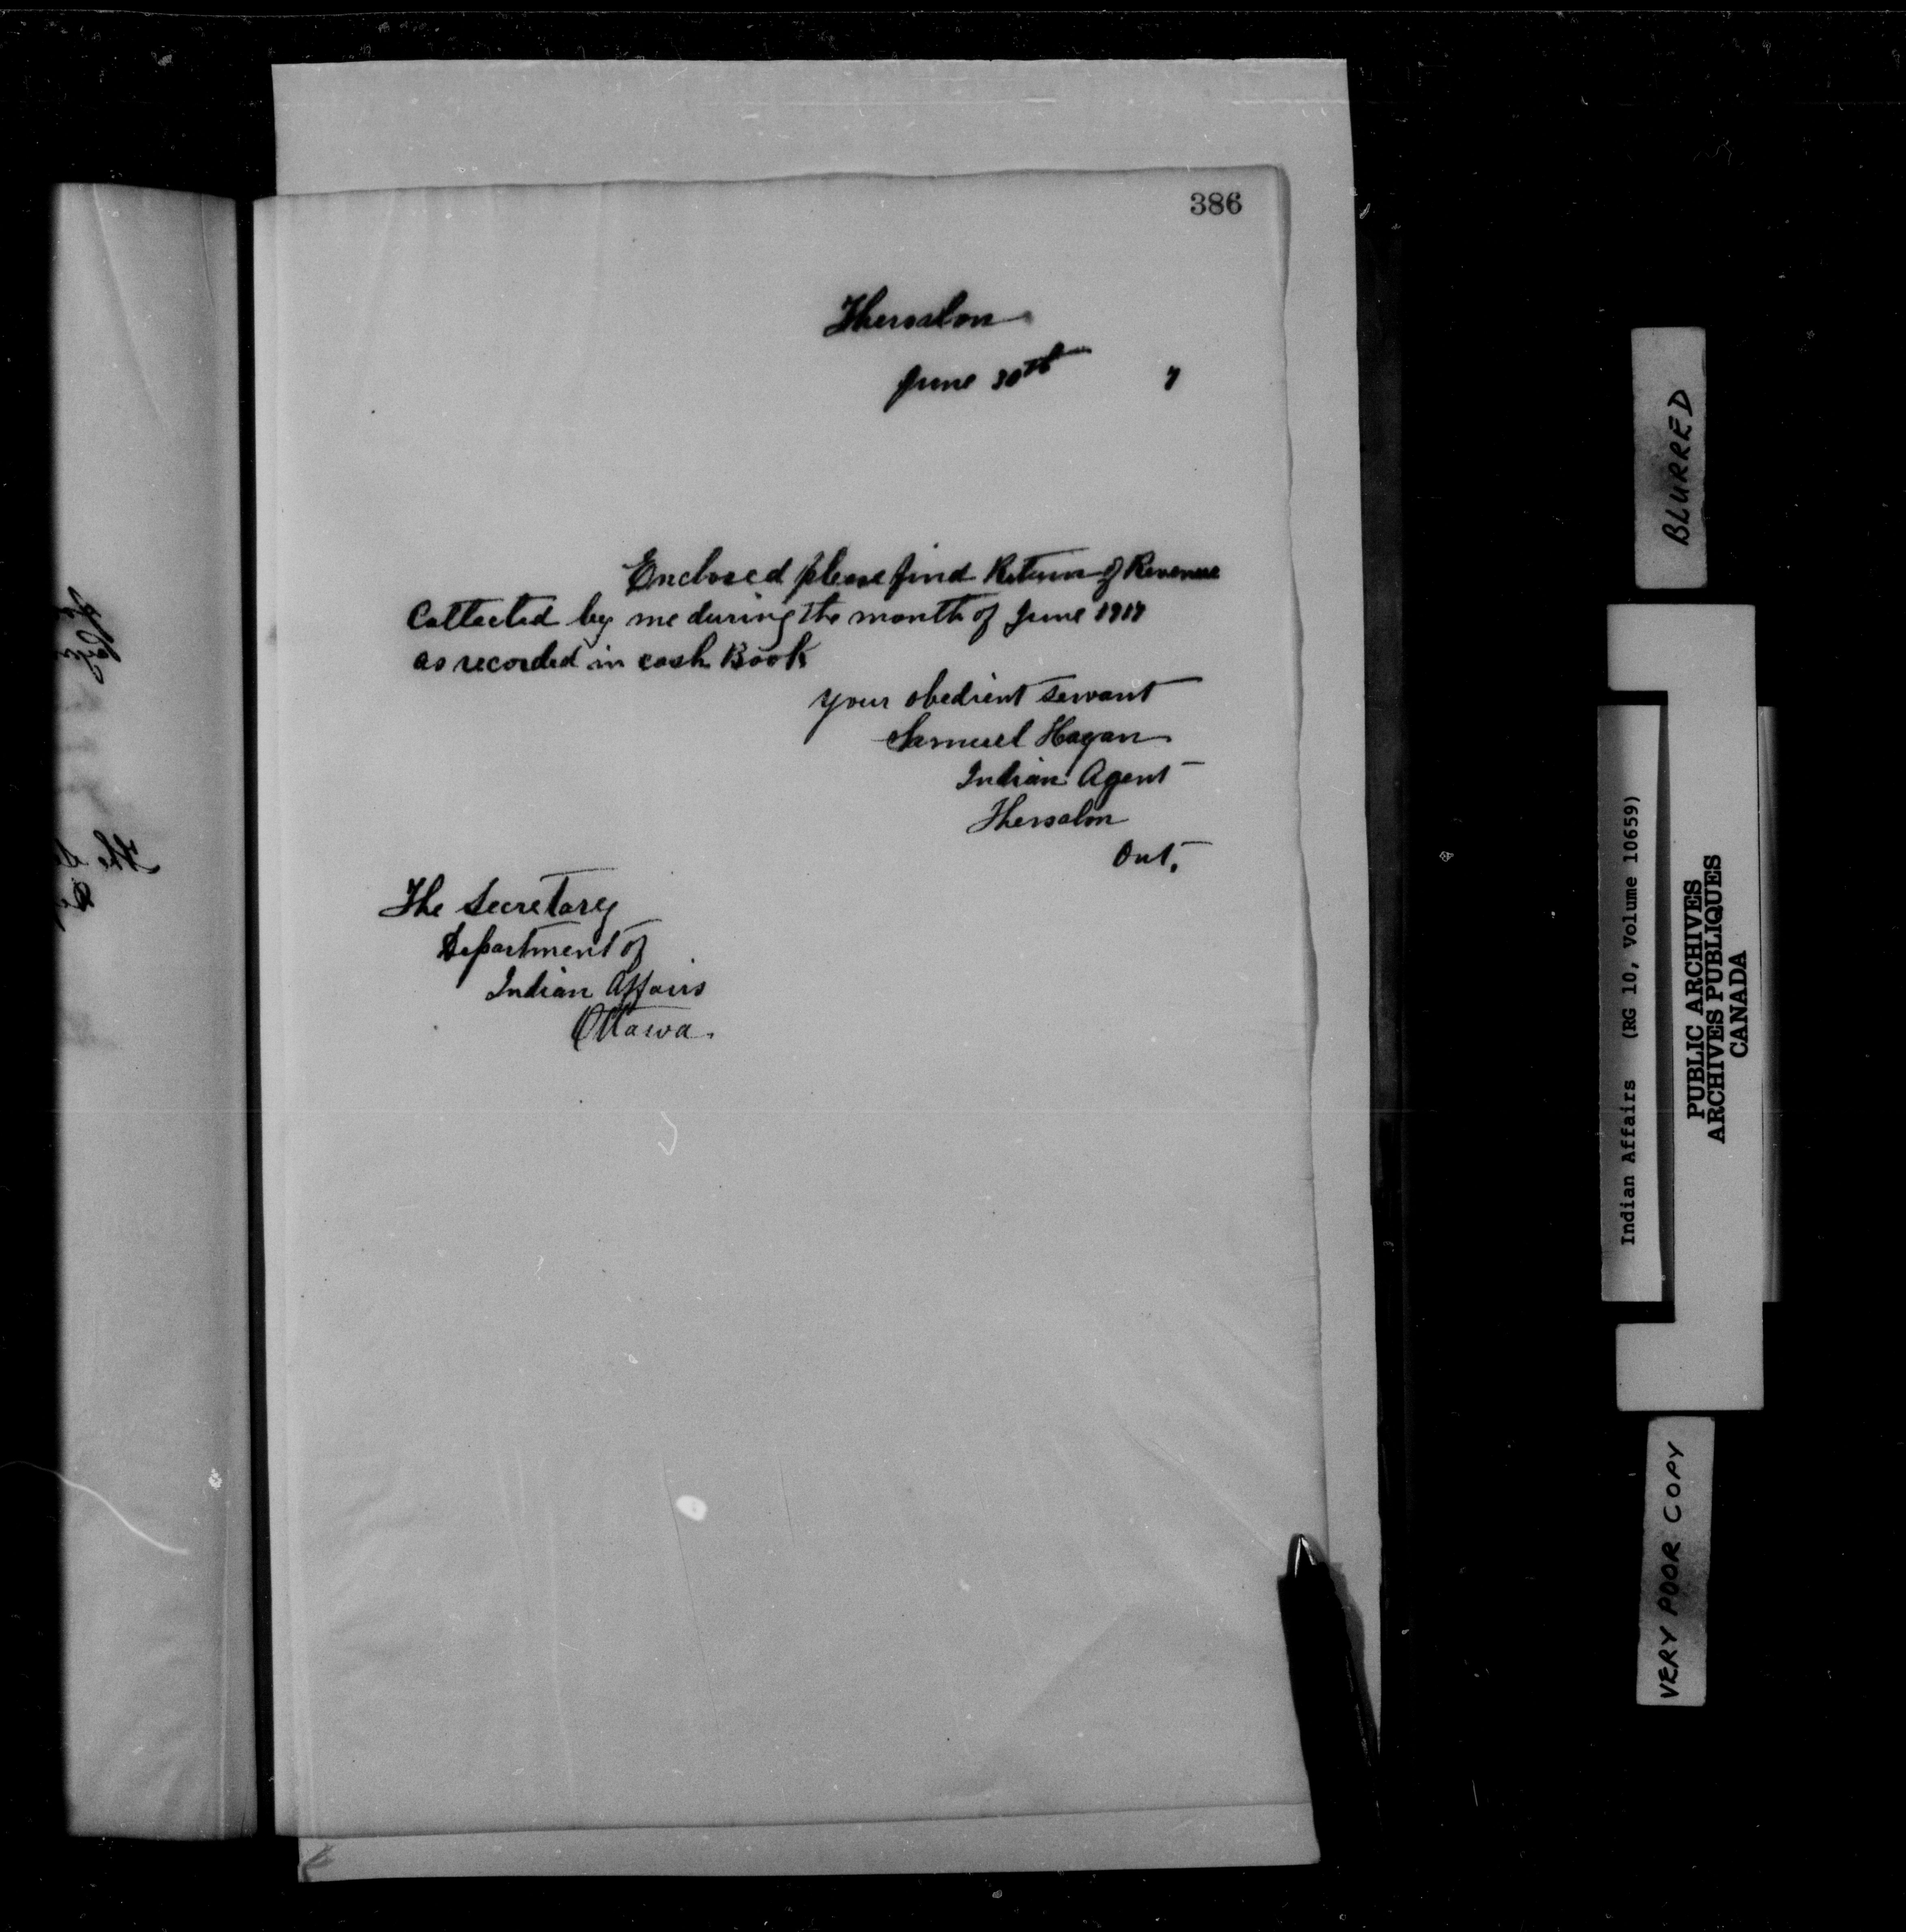 386
Thessalon
June 30th 7
Enclosed please find Return of Revenue
Collected by me during the month of June 1917
as recorded in cash Book
your obedient servant
Samuel Hagan
Indian Agent
Thessalon
Ont.
The Secretary
Department of
Indian Affairs
Ottawa.
BLURRED
Indian Affairs (RG 10, Volume 10659)
PUBLIC ARCHIVES
ARCHIVES PUBLIQUES
CANADA
VERY POOR COPY